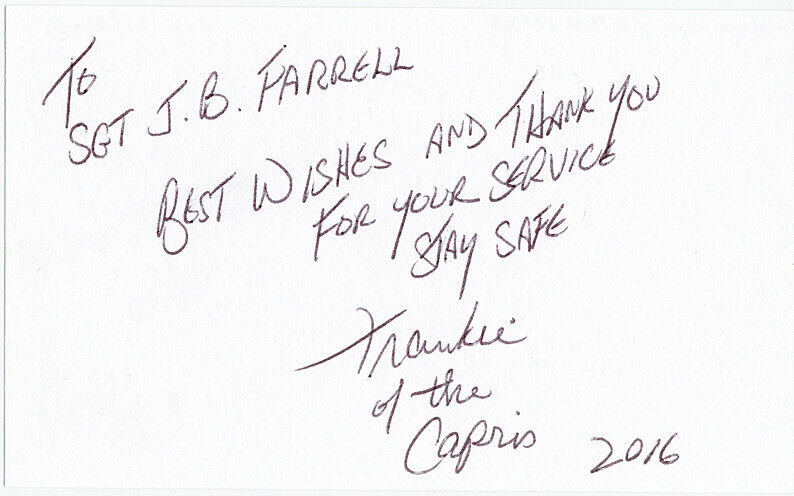 TO
SGT J.B. FARRELL
BEST WISHES AND THANK YOU
FOR YOUR SERVICE
STAY SAFE
Frankie
of the
Capris 2016